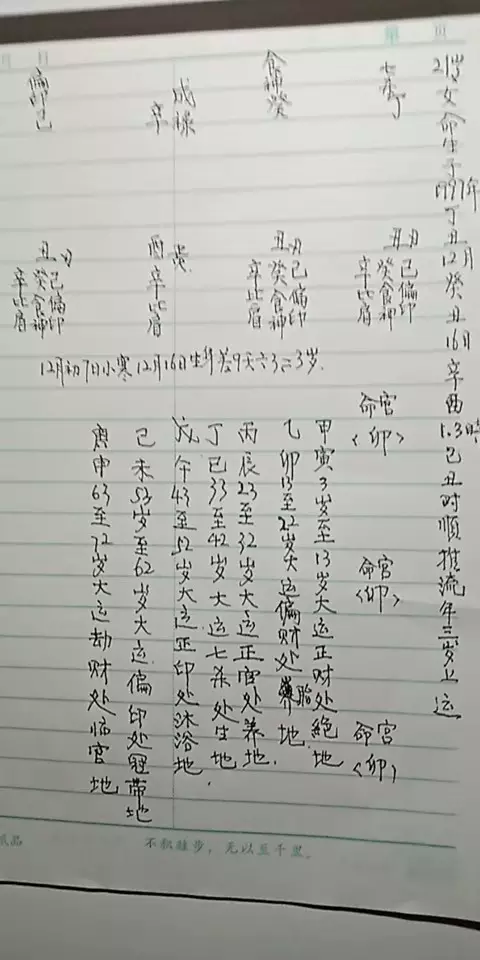 第 页
月 日
21岁女命生于1997年丁丑12月癸丑16日辛酉1.3时己丑时顺推流年三岁上运
七杀丁
食神癸
辛
偏印己
丑月
己偏印
癸食神
辛比肩
丑月
己偏印
癸食神
辛比肩
酉
辛比肩
丑月
己偏印
癸食神
辛比肩
12月初7日小寒12月16日生
3岁.
命宫
<卯>
命宫
<卯>
命宫
<卯>
甲寅3岁至13岁大运正财处绝地
乙卯13至22岁大运偏财处胎地.
丙辰23至32岁大运正官处养地.
丁巳33至42岁大运七杀处生地
戊午43至52岁大运正印处沐浴地.
己未53岁至62岁大运偏印处冠带地
庚申63至72岁大运劫财处临官地
不积跬步，无以至千里。
纸品